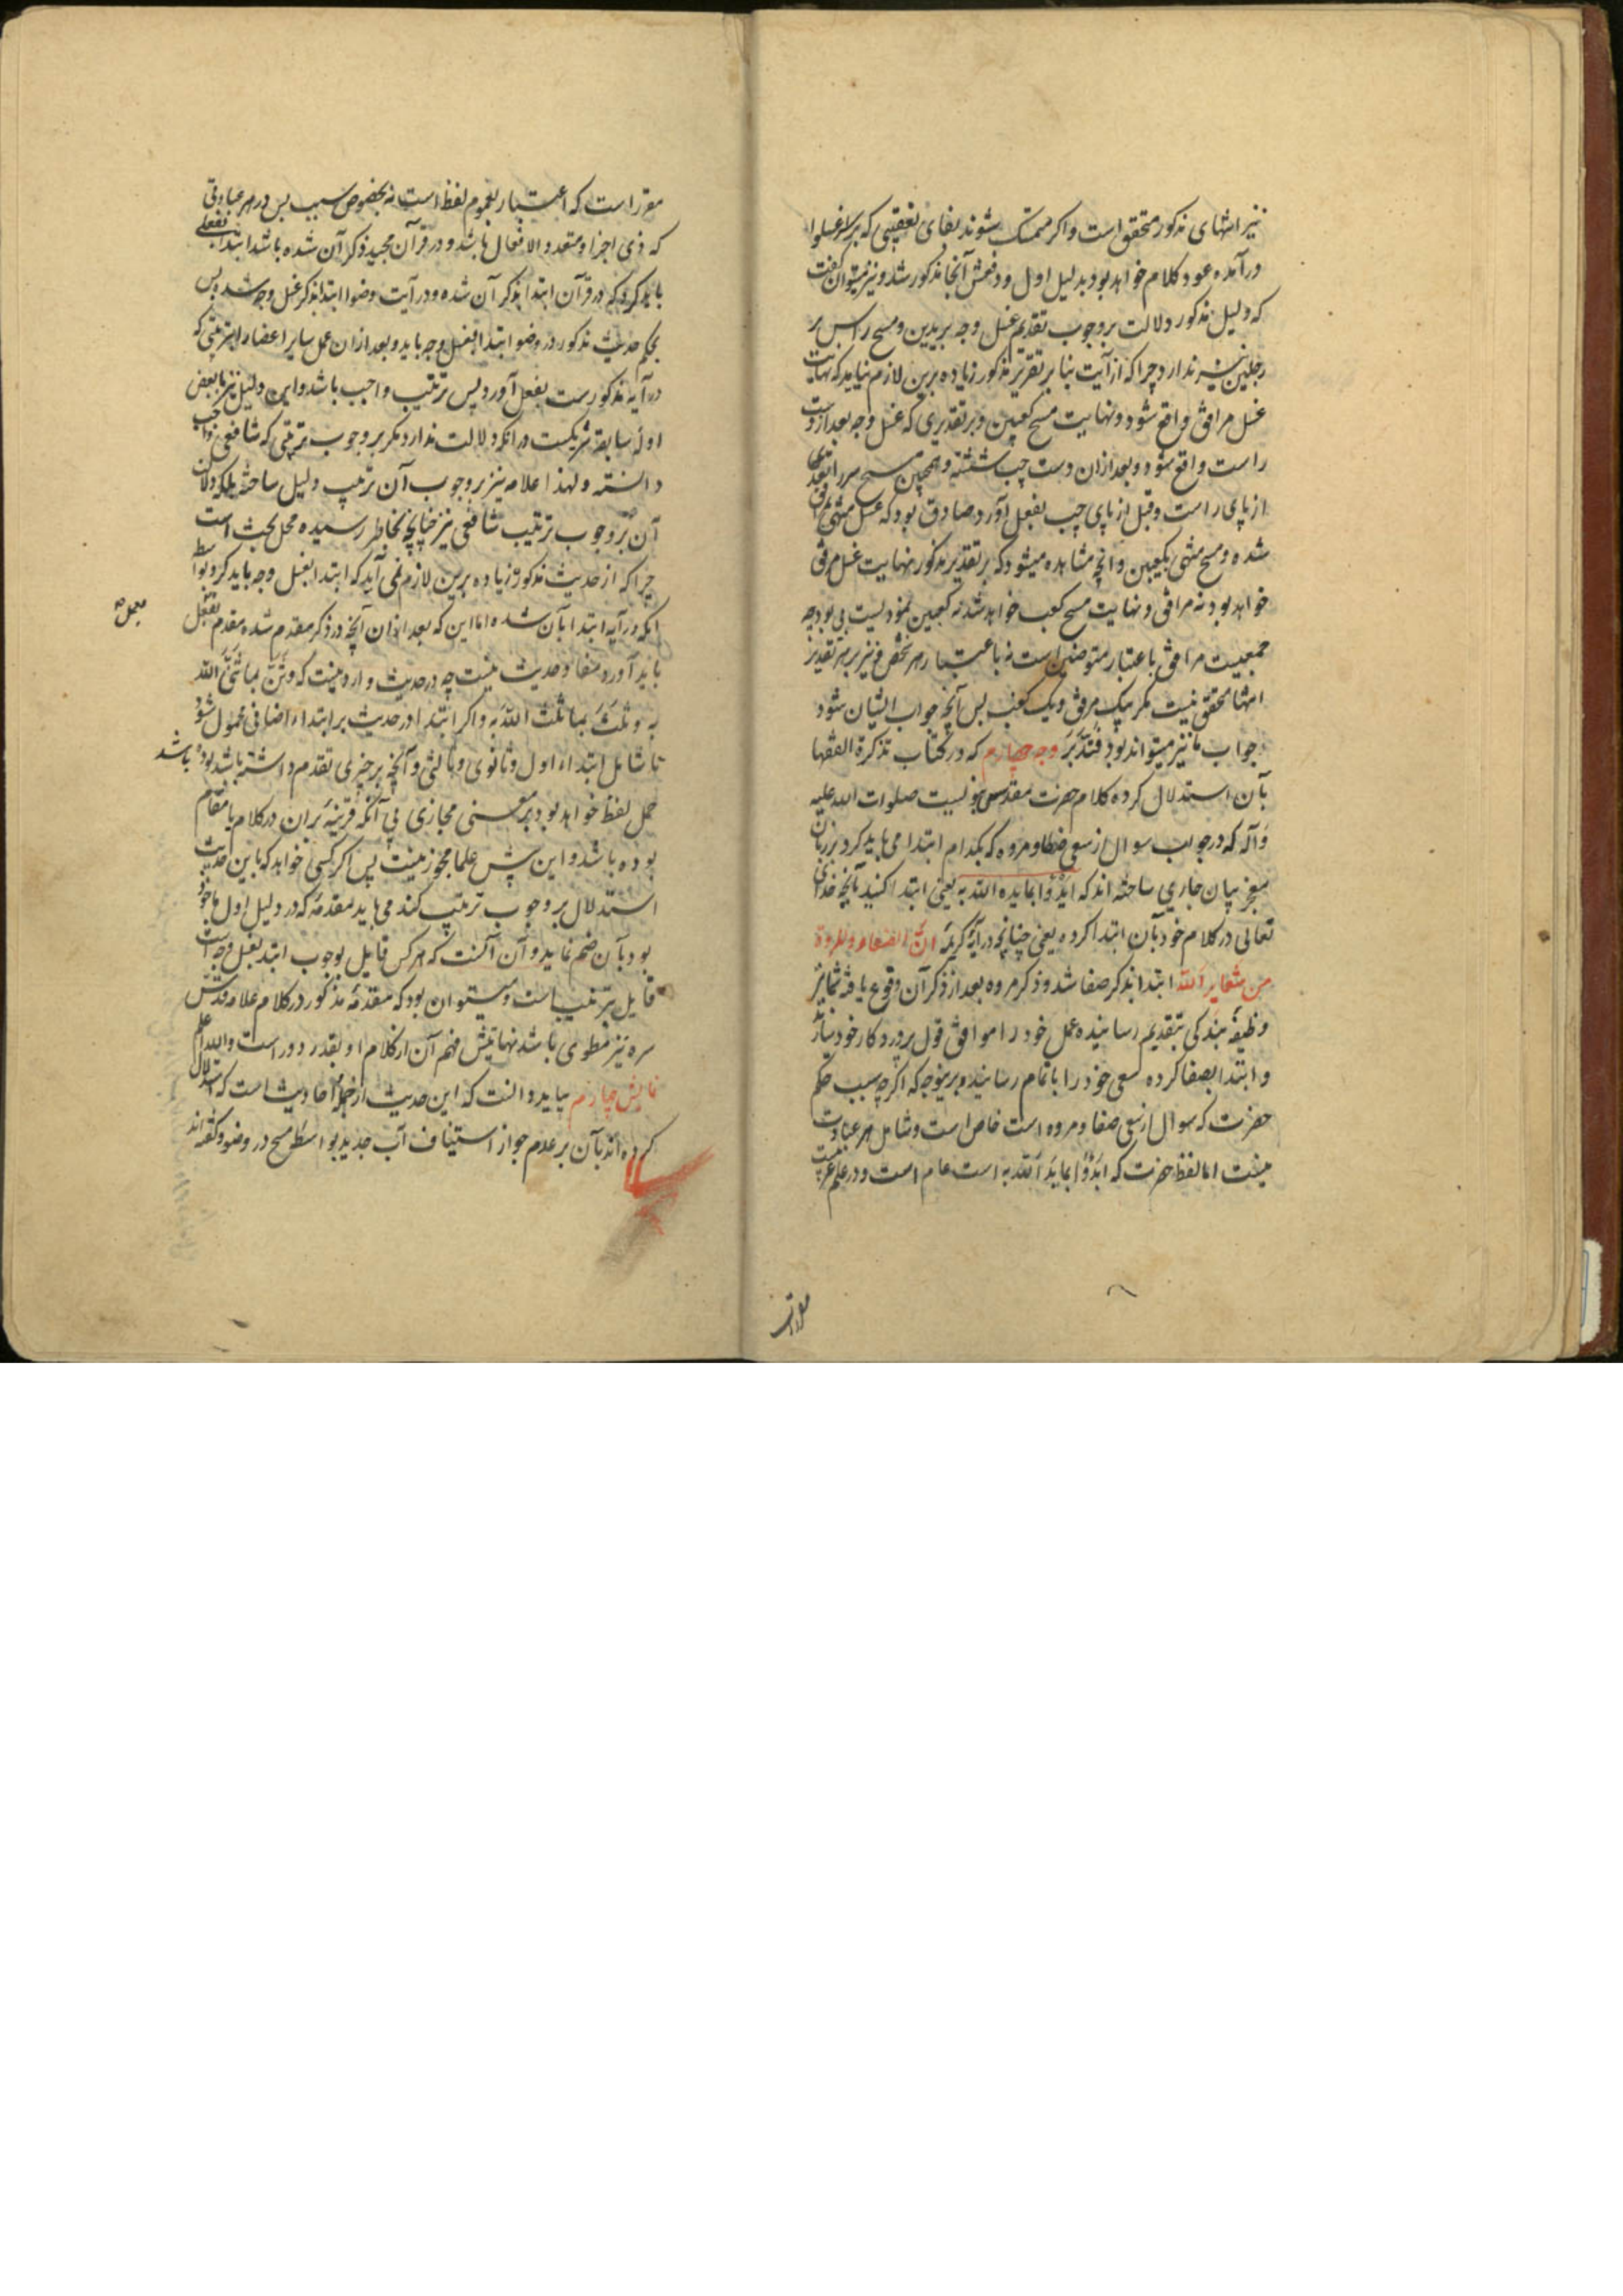 نیز انتهای مذکور متحقق است و اکر متمسک شوند بفای تعقیبی که بر سر اغسلوا
درآمده عود کلام خواهد بود بدلیل اول و دفعش آنجا مذکور شد و نیز میتوان گفت
که دلیل مذکور دلالت بر وجوب تقدیم غسل وجه بر یدین و مسح راس بر
رجلین نیز ندارد چرا که از آیت بنا بر تقریر مذکور زیاده برین لازم نیاید که نهایت
غسل مرافق واقع شود و نهایت مسح کعبین و بر تقدیری که غسل وجه بعد از دست
راست واقع شود و بعد از ان دست چپ شسته و همچنین مسح سر را بعد
از پای راست و قبل از پای چپ بفعل آورد صادق بود که غسل منتهی بمرافق
شده و مسح منتهی بکعبین و آنچه مشاهده میشود که بر تقدیر مذکور نهایت غسل مرفق
خواهد بود نه مرافق و نهایت مسح کعب خواهد شد نه کعبین نمودیست بی بود چه
جمعیت مرافق باعتبار متوضئین است نه باعتبار هر شخص و نیز بر هر تقدیر
انتها متحقق نیست مکر بیک مرفق و یک کعب پس آنچه جواب ایشان شود
جواب ما نیز میتواند بود فتدبر وجه چهارم که در کتاب تذکرة الفقها
بآن استدلال کرده کلام حضرت مقدس نبویست صلوات الله علیه
و آله که در جواب سوال از سعی صفا و مروه که بکدام ابتدا می باید کرد بر زبان
معجز بیان جاری ساخته اند که ابدؤا بما بدء الله به یعنی ابتدا کنید بآنچه خدای
تعالی در کلام خود بآن ابتدا کرده یعنی چنانچه در آیه کریمه ان الصفا و المروة
من شعایر الله ابتدا بذکر صفا شد و ذکر مروه بعد از ذکر آن وقوع یافته شما نیز
وظیفه بندکی بتقدیم رسانیده عمل خود را موافق قول پروردکار خود سازید
و ابتدا بصفا کرده سعی خود را باتمام رسانید و برینوجه که اکرچه سبب حکم
حضرت که سوال از سعی صفا و مروه است خاص است و شامل هر عبادت
نیست اما لفظ حضرت که ابدؤا بما بدء الله به است عام است و در علم عربیت
مقرر
مقرر است که اعتبار بعموم لفظ است نه بخصوص سبب پس در هر عبادتی
که ذی اجزا و متعدد الافعال باشد و در قرآن مجید ذکر آن شده باشد ابتدا بفعلی
باید کرد که در قرآن ابتدا بذکر آن شده و در آیت وضو ابتدا بذکر غسل وجه شده پس
بحکم حدیث مذکور در وضو ابتدا بغسل وجه باید و بعد از ان عمل سایر اعضا بترتیبی که
در آیه مذکورست بفعل آورد پس ترتیب واجب باشد و این دلیل نیز با بعض
ادله سابقه شریکست در انکه دلالت ندارد مکر بر وجوب ترتیبی که شافعی واجب
دانسته و لهذا علامه نیز بر وجوب آن ترتیب دلیل ساخته بلکه دلالت
آن بر وجوب ترتیب شافعی نیز چنانچه بخاطر رسیده محل بحث است
چرا که از حدیث مذکور زیاده برین لازم نمی آید که ابتدا بغسل وجه باید کرد بواسطه
انکه در آیه ابتدا بآن شده اما این که بعد از ان آنچه در ذکر مقدم شده مقدم بفعل
باید آورد مفاد حدیث نیست چه در حدیث وارد نیست که و ثن بما ثنی الله
به و ثلث بما ثلث الله به و اکر ابتدا در حدیث بر ابتداء اضافی محمول شود
تا شامل ابتداء اول و ثانوی و ثالثی و آنچه بر چیزی تقدم داشته باشد بوده باشد
حمل لفظ خواهد بود بر معنی مجازی بی آنکه قرینه بر ان در کلام یا مقام
بوده باشد و این پیش علما مجوز نیست پس اکر کسی خواهد که باین حدیث
استدلال بر وجوب ترتیب کند می باید مقدمه که در دلیل اول ماخوذ
بود بآن ضم نماید و آن آنست که هر کس قایل بوجوب ابتدا بغسل وجه است
قایل بترتیب است و میتوان بود که مقدمه مذکور در کلام علامه قدس
سره نیز مطوی باشد نهایتش فهم آن از کلام او بقدر دور است والله اعلم
نمایش چهارم بباید دانست که این حدیث از جمله احادیث است که استدلال
کرده اند بآن بر عدم جواز استیناف آب جدید بواسطه مسح در وضو و گفته اند